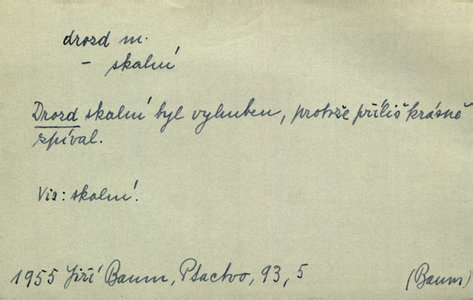 drozd m.
- skalní
Drozd skalní byl vyhuben, protože příliš krásně
zpíval.
Viz: skalní.
1955 Jiří Baum, Ptactvo, 93, 5 (Baum)